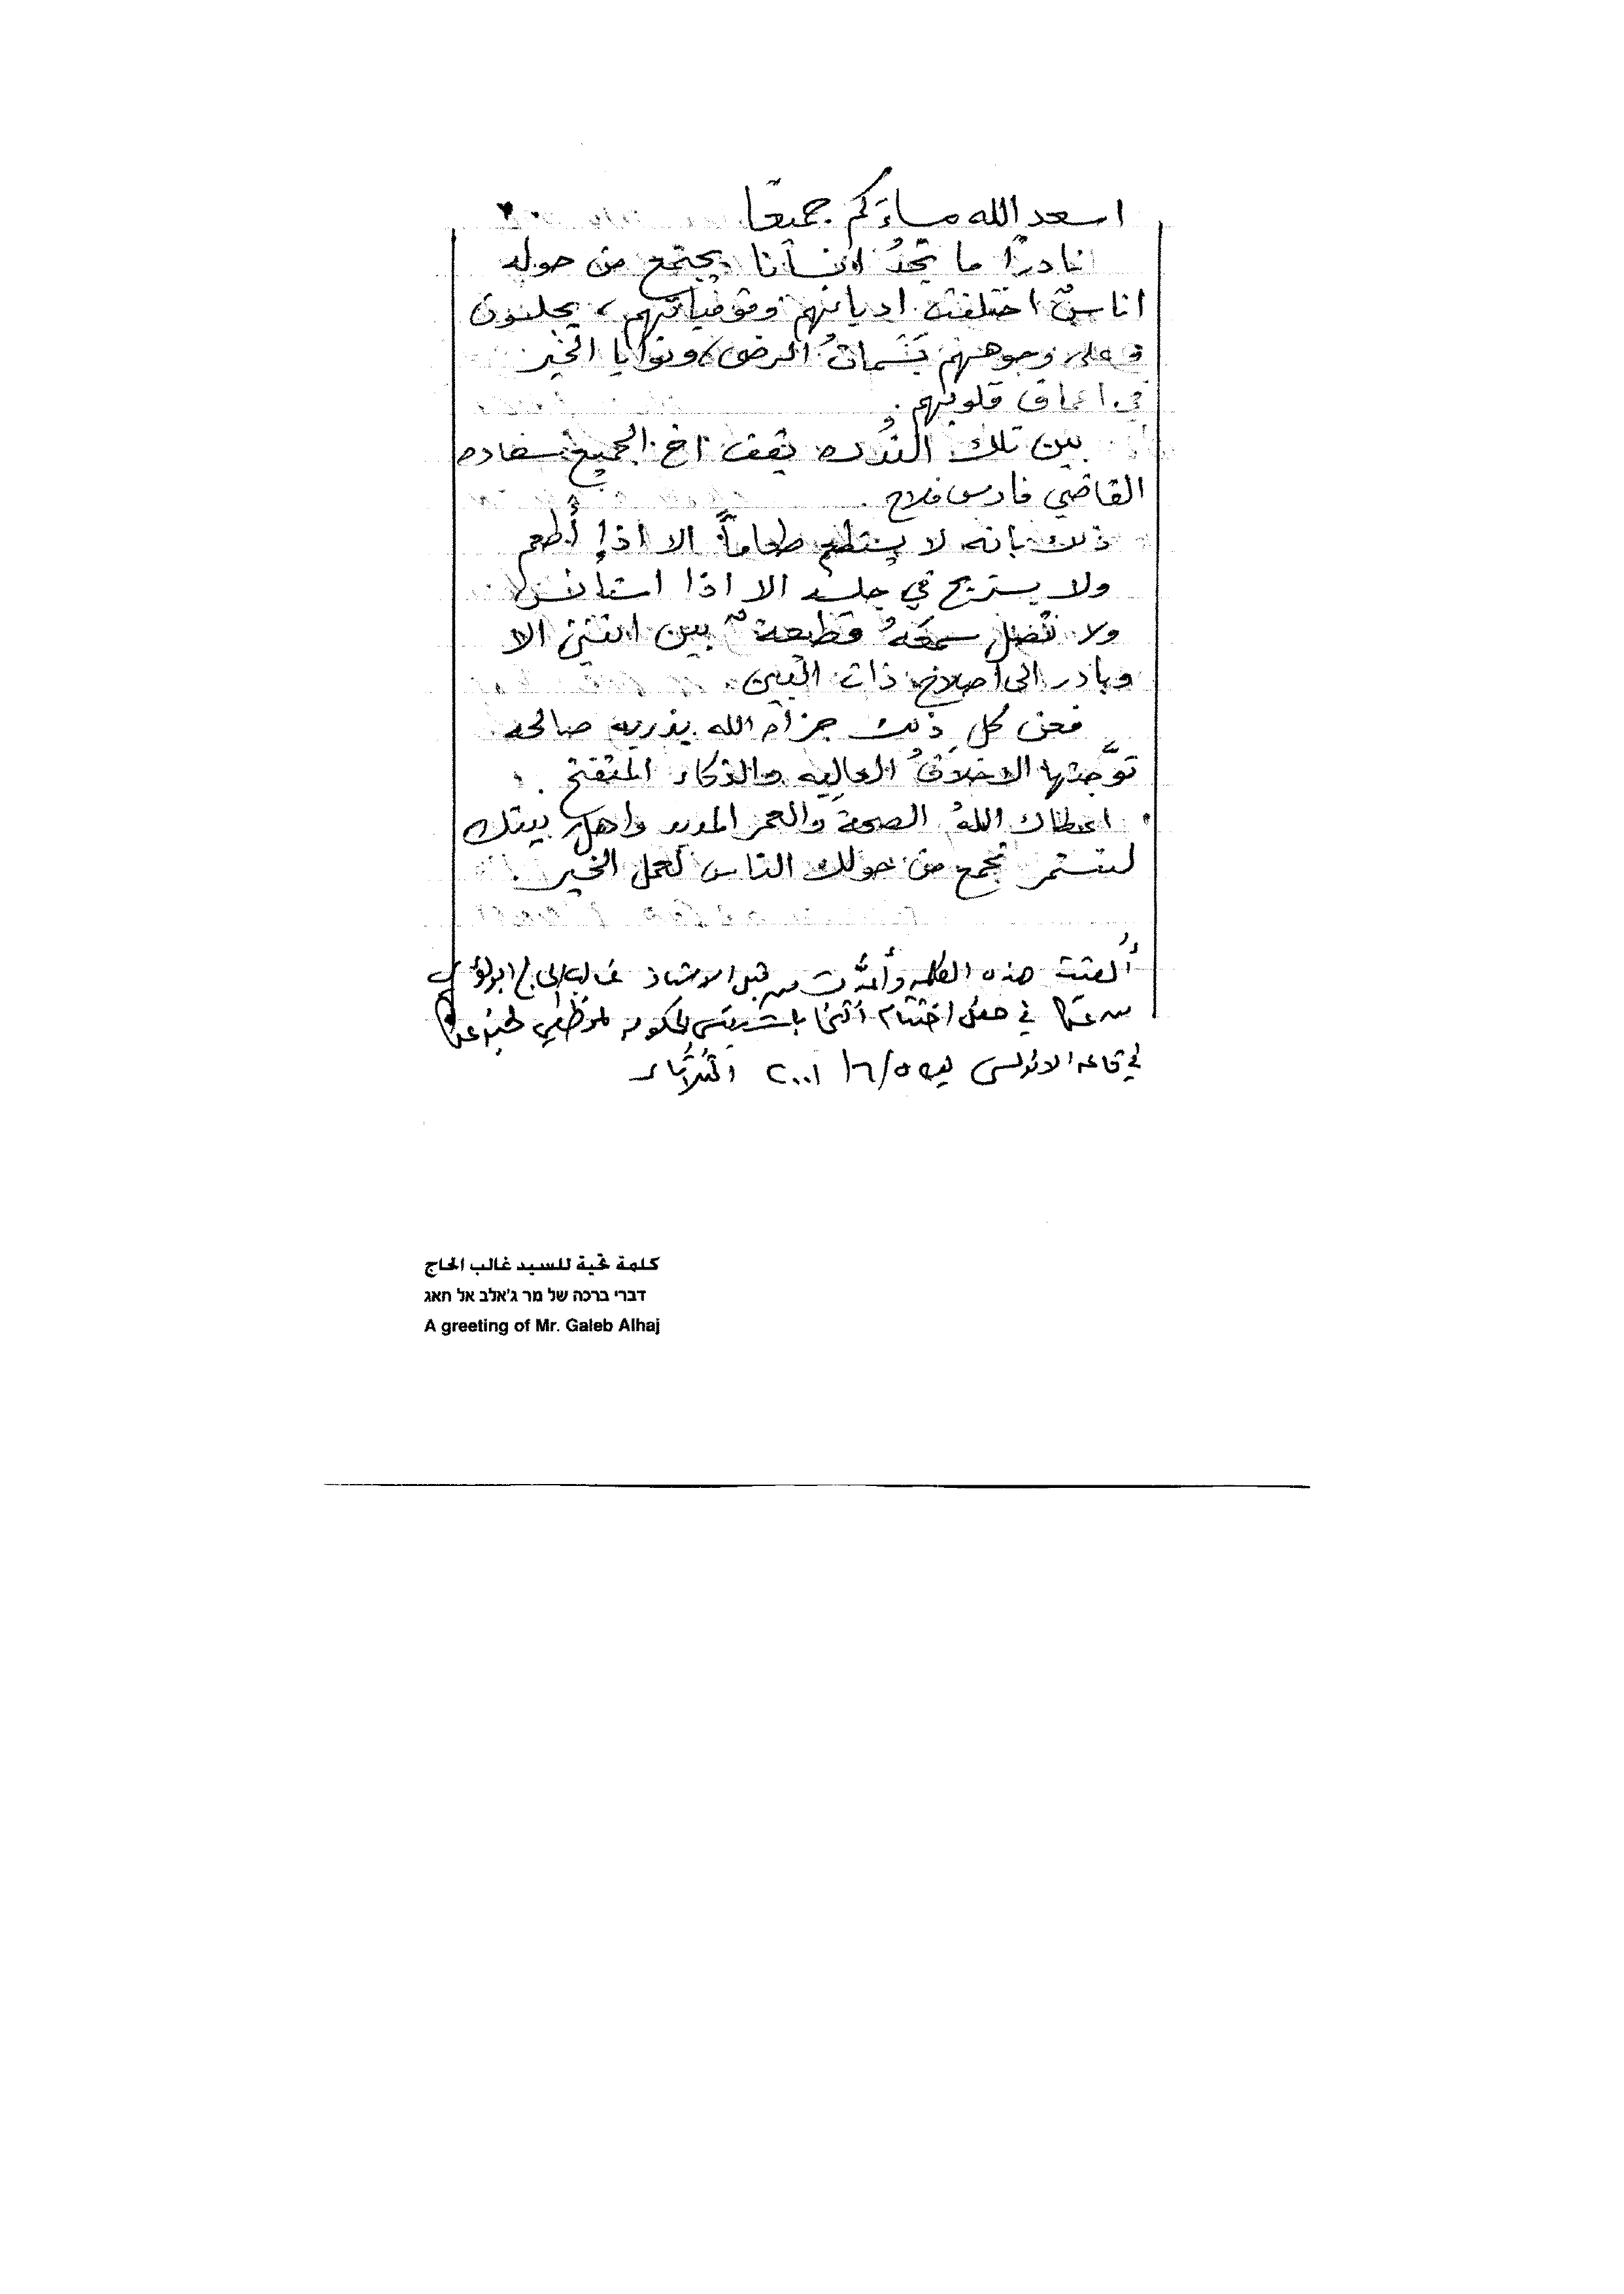 اسعد الله مساءَكم جميعًا
نادرًا ما تجدُ انسانا يجتمع من حوله
اناسٌ اختلفت اديانهم وقومياتهم، يجلسون
وعلى وجوههم بَسَماتُ الرضى، ونوايا الخير
في اعماق قلوبهم.
بين تلك النُدره يقف اخ الجميع سعاده
القاضي فارس فلاح.
ذلك بانه لا يستطعم طعاماً الا اذا أُطعم
ولا يستريح في جلسه الا اذا استأنس
ولا تصل سمعَهُ قطيعةٌ بين اثنين الا
وبادر الى اصلاح ذات البين.
فعن كل ذلك جزاه الله بذريه صالحه
توَّجتها الاخلاقُ العاليه والذكاء المتفتح.
اعطاك اللهُ الصحةَ والعمر المديد واهل بيتك
لتستمر تجمع من حولك الناس لعمل الخير.
أُلقيت هذه الكلمه من قبل الاستاذ غالب الحاج ابو لؤي
من عكا في حفل اختتام
في قاعه الاندلس ٥/٦/٢٠٠١ الثلاثاء
كلمة تحية للسيد غالب الحاج
דברי ברכה של מר ג'אלב אל חאג
A greeting of Mr. Galeb Alhaj